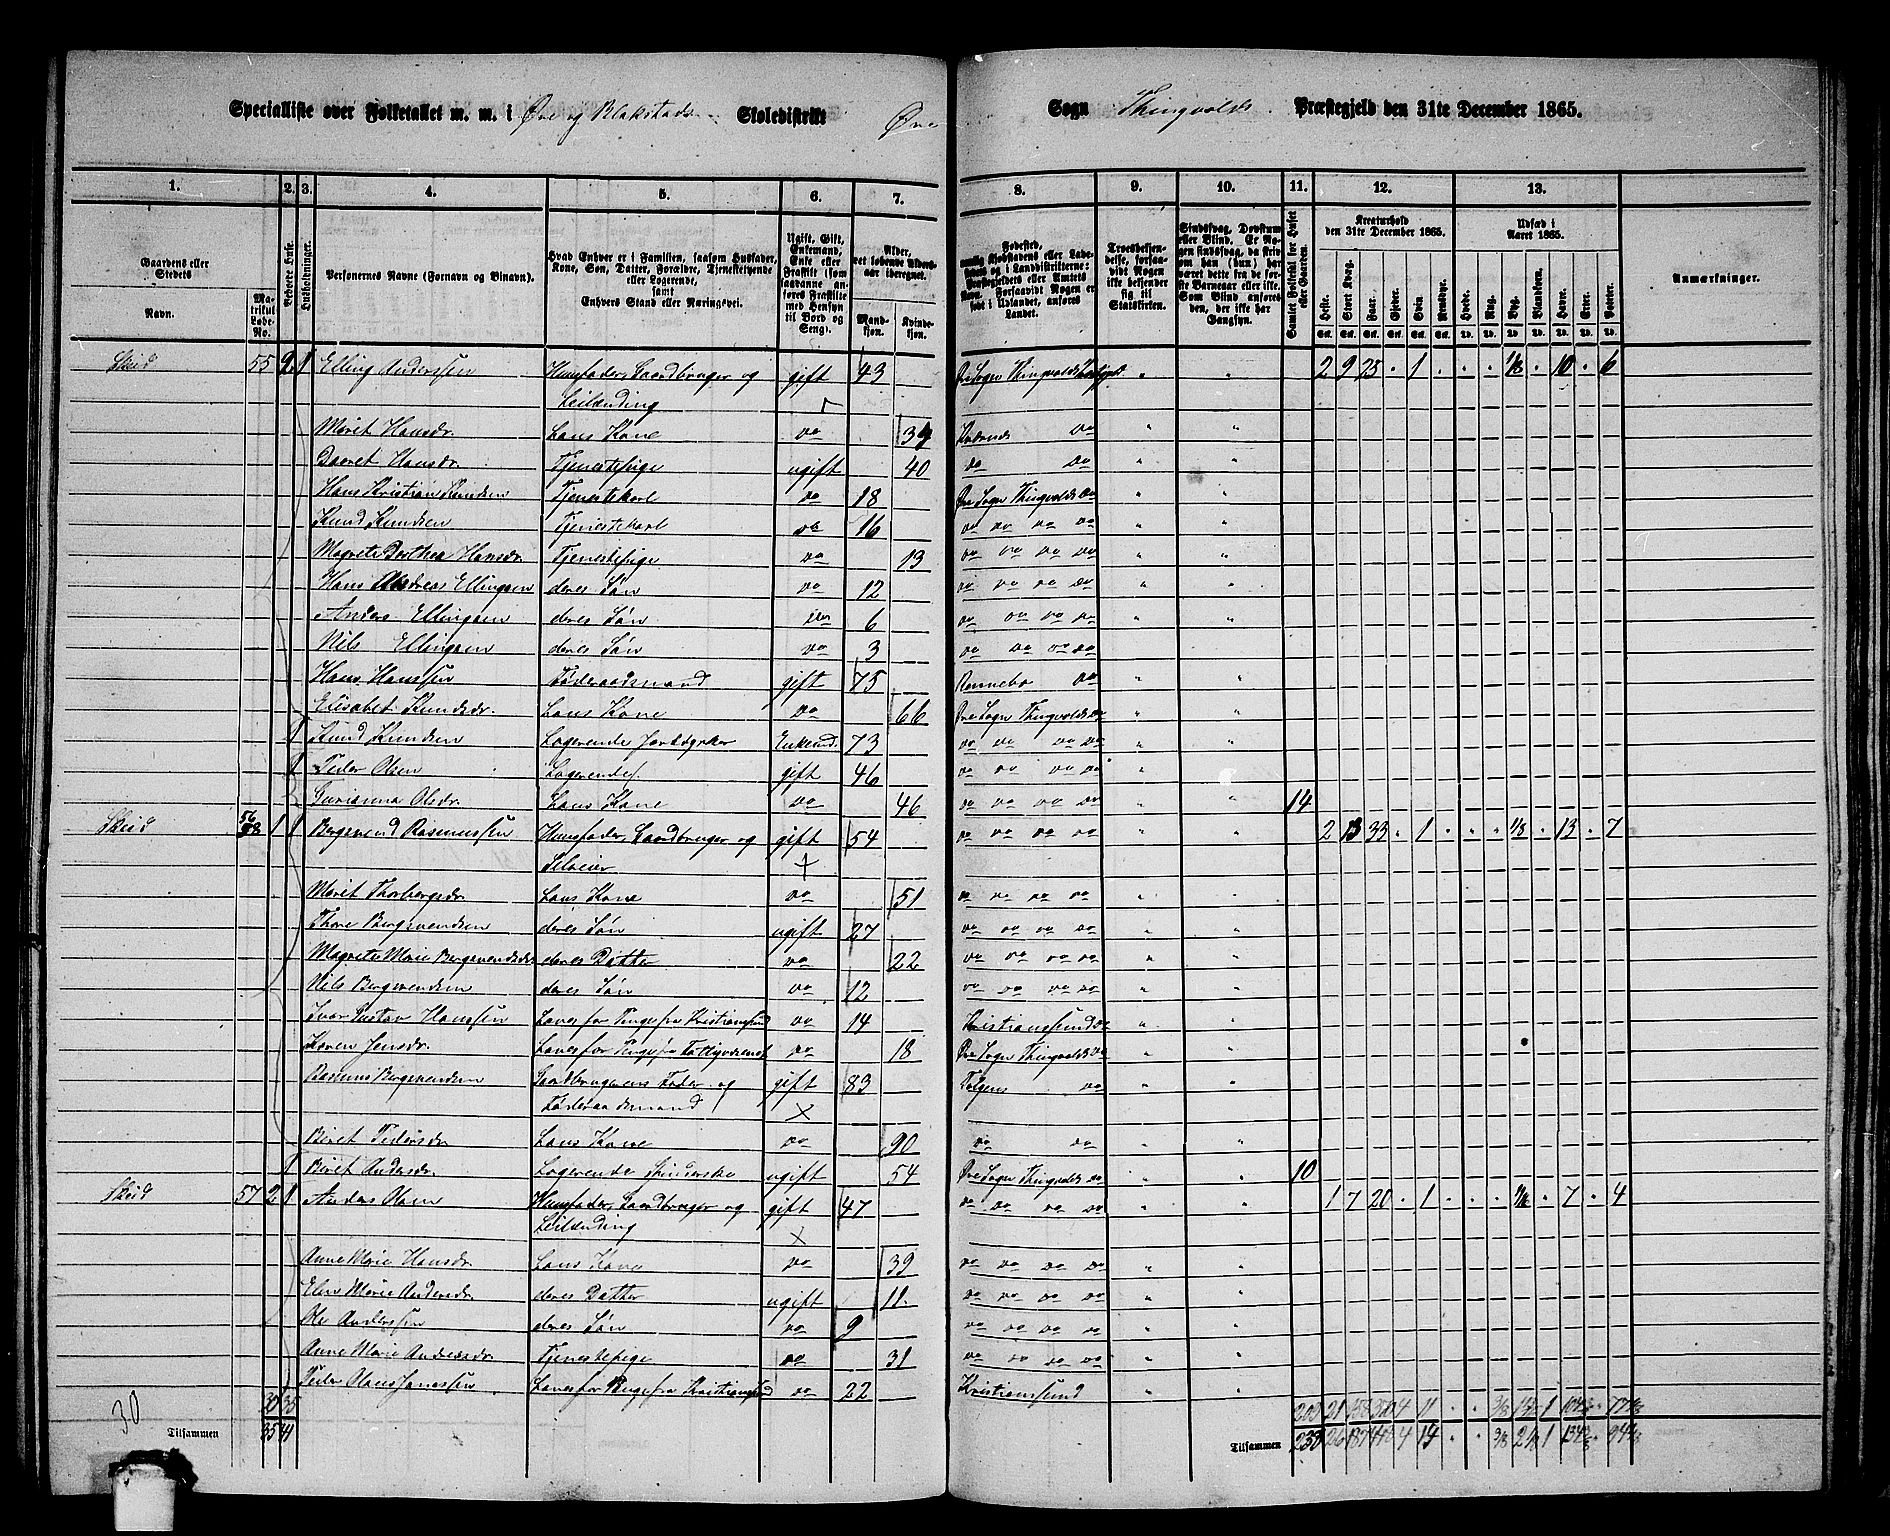 Specialliste over Folketallet m. m. i Øre og Blakstads Skoledistrikt Øre Sogn Thingvolds Præstegjeld den 31te December 1865.
1. 2. 3. 4. 5. 6. 7. 8. 9. 10. 11. 12. 13.
Gaardens eller Stedets
Navn.
Matrikul Løbe-No.
Beboede Huse.
Husholdninger.
Personernes Navne (Fornavn og Binavn).
Hvad Enhver er i Familien, saasom Husfader, Kone, Søn, Datter, Forældre, Tjenestetyende eller Logerende, samt Enhvers Stand eller Næringsvei.
Ugift, Gift, Enkemand, Enke eller Fraskilt (som saadanne anføres Fraskilte med Hensyn til Bord og Seng).
Alder, det løbende Alders-aar iberegnet.
Mandkjøn. Kvindekjøn.
Fødested,
Troesbekjendelse, forsaavidt Nogen ikke bekjender sig til Statskirken.
Sindssvag, Døvstum eller Blind.
Samlet Folketal for Huset eller Gaarden.
Kreaturhold den 31te December 1865.
Heste. Stort Kvæg. Faar. Gjeder. Svin. Rensdyr.
Udsæd i Aaret 1865.
Hvede. Rug. Byg. Blandkorn. Havre. Erter. Poteter.
Anmærkninger.
Skeid 55 2 1 Elling Anderssen Huusfader, Gaardbruger og gift 43 Øre Sogn Thingvolds Præstegjeld " " 2 9 25 - 1 - - - 1/8 - 10 - 6
Leilænding
Marit Hansdr. Hans Kone do 34 Kvernes do " "
Baaret Hansdr. Tjenestepige ugift 40 do do " "
Hans Kristian Knudsen Tjenestekarl do 18 Øre Sogn Thingvolds do " "
Knud Knudsen Tjenestekarl do 16 do do do do " "
Magrete Berthea Hansdr. Tjenestepige do 13 do do do do " "
Hans Andreas Ellingsen deres Søn do 12 do do do do " "
Anders Ellingsen deres Søn do 6 do do do do " "
Nils Ellingsen deres Søn do 3 do do do do " "
Hans Hanssen Føderaadsmand gift 75 Rennebo do " "
Elisabet Knudsdr. Hans Kone do 66 Øre Sogn Thingvolds do " "
1 Knud Knudsen Logerende Enkemd. 73 do do do do " "
1 Peder Olsen Logerende gift 46 do do do do " "
Gurianna Olsdr. Hans Kone do 46 do do do do " " 14
Skeid 56 1 1 Bergsvend Rasmussen Huusfader, Gaardbruger og gift 54 do do do do " " 2 13 33 - 1 - - - 1/8 - 13 - 7
Selveier
Marit Thorbergsdr. Hans Kone do 51 do do do do " "
Thore Bergsvendsen deres Søn ugift 27 do do do do " "
Magrete Marie Bergsvendsdr. deres Datter do 22 do do do do " "
Nils Bergsvendsen deres Søn do 12 do do do do " "
Ivar Gustav Hanssen do 14 Kristianssund do " "
Karen Jensdr. do 18 Øre Sogn Thingvolds do " "
Rasmus Bergsvendsen Gaardbrugerens Fader og gift 83 do " "
Føderaadsmand
Beret Pedersdr. Hans Kone do 90 do do " "
1 Beret Andersdr. Logerende Spinderske ugift 54 Øre Sogn Thingvolds do " " 10
Skeid 57 2 1 Anders Olsen Huusfader, Gaardbruger og gift 47 do do do do " " 1 7 20 - 1 - - - - 7 - 4
Leilænding
Anne Marie Hansdr. Hans Kone do 39 do do do do " "
Elen Marie Andersdr. deres Datter ugift 11 do do do do " "
Ole Anderssen deres Søn do 9 do do do do " "
Anne Marie Andersdr. Tjenestepige do 31 do do do do " "
Peder Olaus Janussen do 22 Kristianssund " "
30 30 35
Tilsammen 35 41
Tilsammen 238